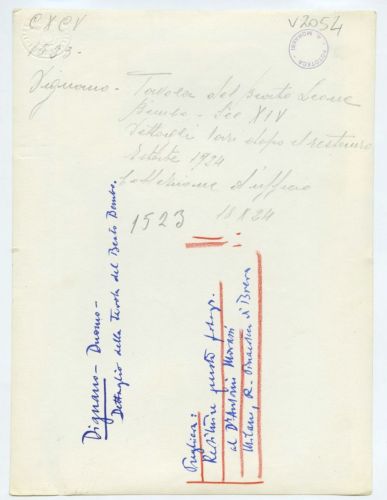 CXCV
V2054
FOTOTECA A. MORASSI
1523
Dignano - Tavola del Beato Leone
Bembo - Sec XIV
Dettagli dopo il restauro
Estate 1924
Collezione d'ufficio
1523
18 X 24
Dignano - Duomo -
Dettaglio della Tavola del Beato Bembo.
Preghiera:
Restituire questa fotogr.
al Dr Antonio Morassi
Milano, R. Pinacoteca di Brera